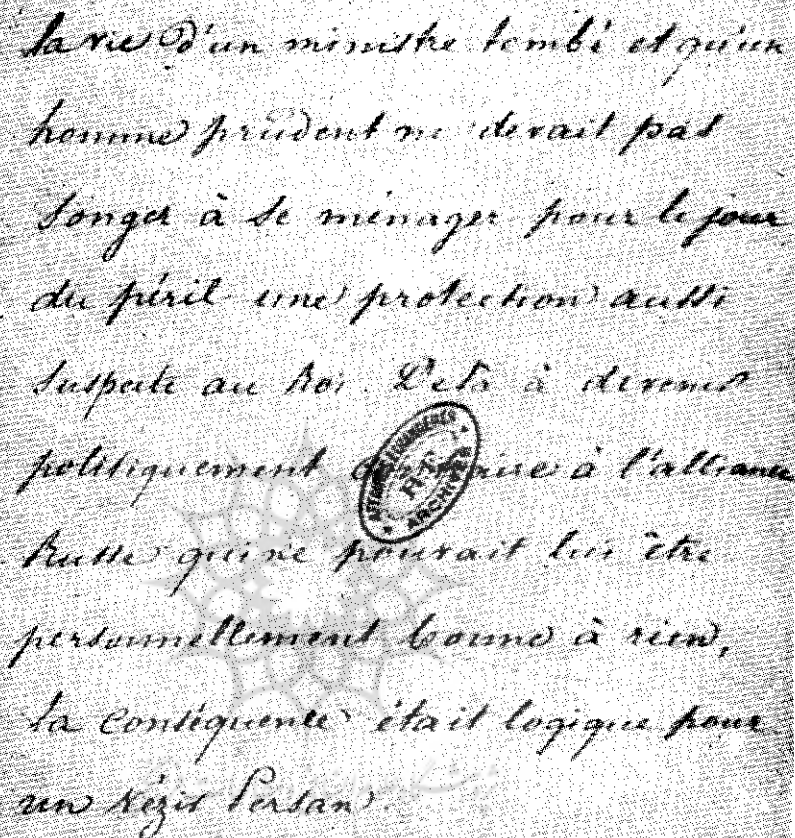 la vie d'un ministre tombé et qu'un
homme prudent ne devait pas
songer à se ménager pour le jour
du péril une protection aussi
suspecte au Roi. De là à devenir
politiquement à l'alliance
Russe qui ne pouvait lui être
personnellement bonne à rien,
la conséquence était logique pour
un Vézir Persan.
AFFAIRES ETRANGÈRES
ARCHIVES